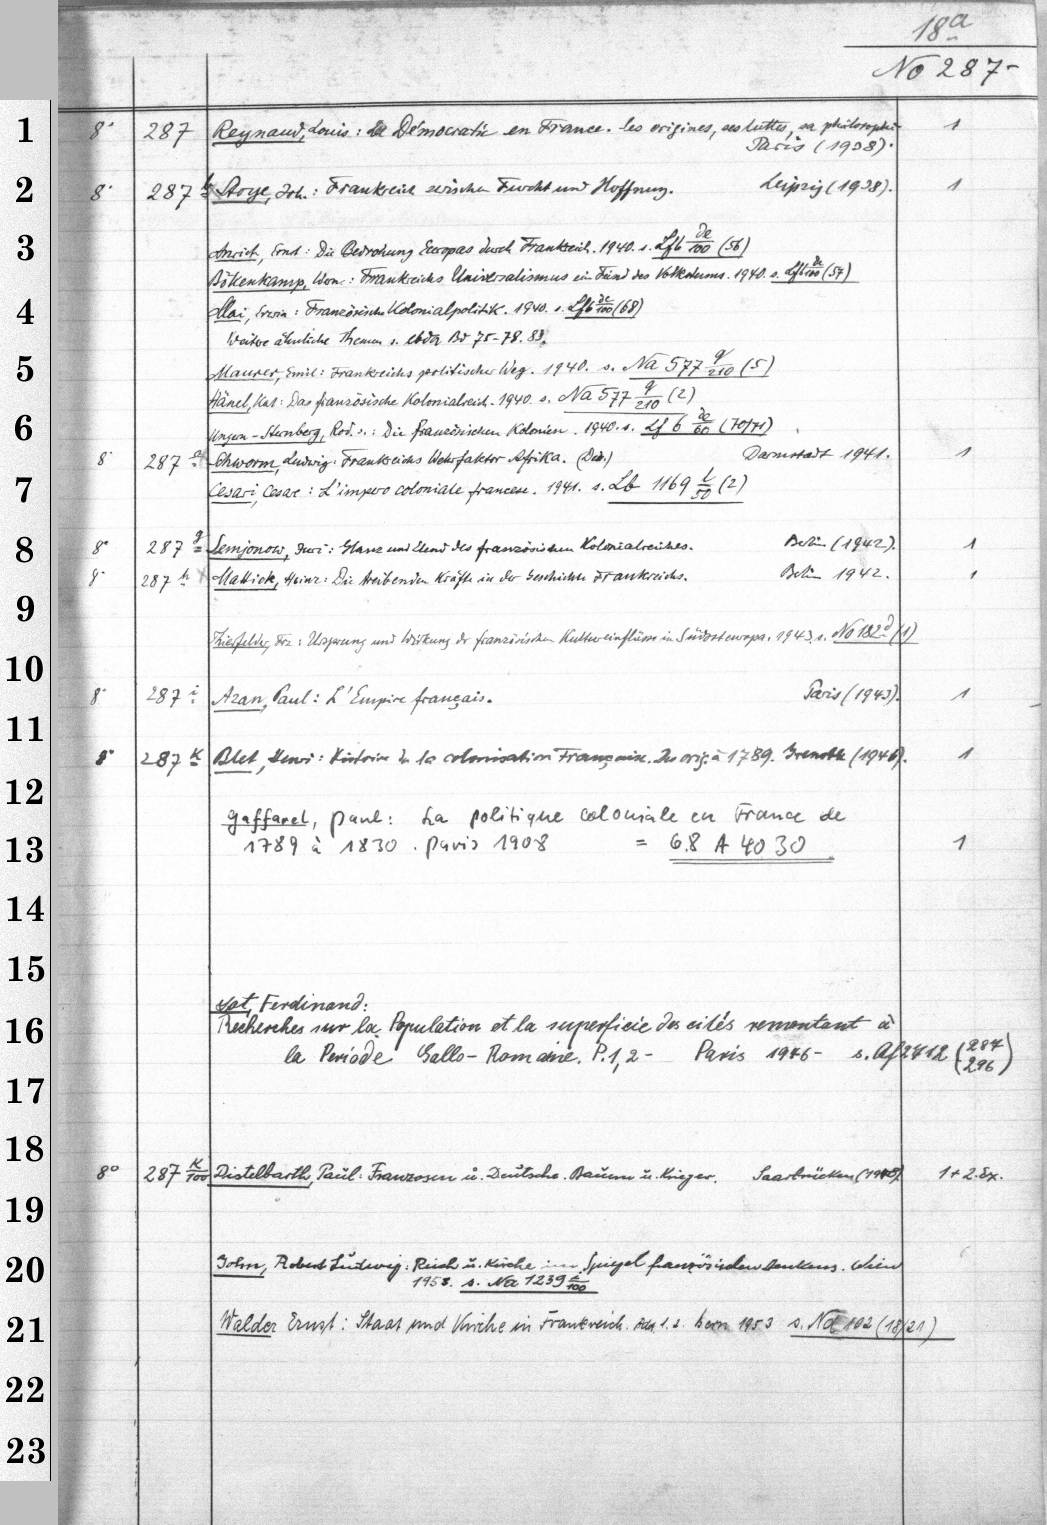 18a
No 287-
1 8° 287 Reynaud, Louis: La Démocratie en France. les origines, ses luttes, sa philosophie.
Paris (1938).
1
2 8° 287 b Stoye, Joh.: Frankreich zwischen Furcht und Hoffnung. Leipzig (1938). 1
3 Anrich, Ernst: Die Bedrohung Europas durch Frankreich. 1940. s. Lfb de/100 (56)
Bökenkamp, Wern.: Frankreichs Universalismus ein Feind des Volkstums. 1940. s. Lfb de/100 (57)
4 Mai, Erwin: Französische Kolonialpolitik. 1940. s. Lfb de/100 (68)
Weitere ähnliche Themen s. ebda Bd 75-78. 83.
5 Maurer, Emil: Frankreichs politischer Weg. 1940. s. Na 577 q/210 (5)
Hänel, Kat: Das französische Kolonialreich. 1940. s. Na 577 q/210 (2)
6 Ungern-Sternberg, Rod. v.: Die französischen Kolonien. 1940. s. Lf 6 de/60 (70/71)
8° 287 Schworm, Ludwig: Frankreichs Wehrfaktor Afrika. (Diss.) Darmstadt 1941. 1
7 Cesari, Cesare: L'impero coloniale francese. 1941. s. Lb 1169 t/50 (2)
8 8° 287 g Semjonow, Juri: Glanz und Elend des französischen Kolonialreiches. Berlin (1942). 1
8° 287 h Mattick, Heinz: Die treibenden Kräfte in der Geschichte Frankreichs. Berlin 1942. 1
9 Thierfelder, Frz: Ursprung und Wirkung der französischen Kultureinflüsse in Südosteuropa. 1943. s. No 182 d (1)
10 8° 287 i Azan, Paul: L'Empire français. Paris (1943). 1
11 8° 287 k Blet, Henri: Histoire de la colonisation Française. Des orig. à 1789. Grenoble (1946). 1
12 Gaffarel, Paul: La politique coloniale en France de
13 1789 à 1830. Paris 1908 = 68 A 4030 1
14
15
Lot, Ferdinand:
16 Recherches sur la Population et la superficie des cités remontant à
la Periode Gallo-Romaine. P. 1, 2 - Paris 1946- s. Af 2412 (284/296)
17
18 8° 287 k/100 Distelbarth, Paul: Franzosen u. Deutsche. Bauern u. Krieger. Saarbrücken (1948) 1 + 2. Ex.
19
20 John, Robert Ludwig: Reich u. Kirche im Spiegel französischen Denkens. Wien
1953. s. Na 1239 /100
21 Walder Ernst: Staat und Kirche in Frankreich. Bd. 1. 2. Bern 1953 s. Nd 102 (18/21)
22
23